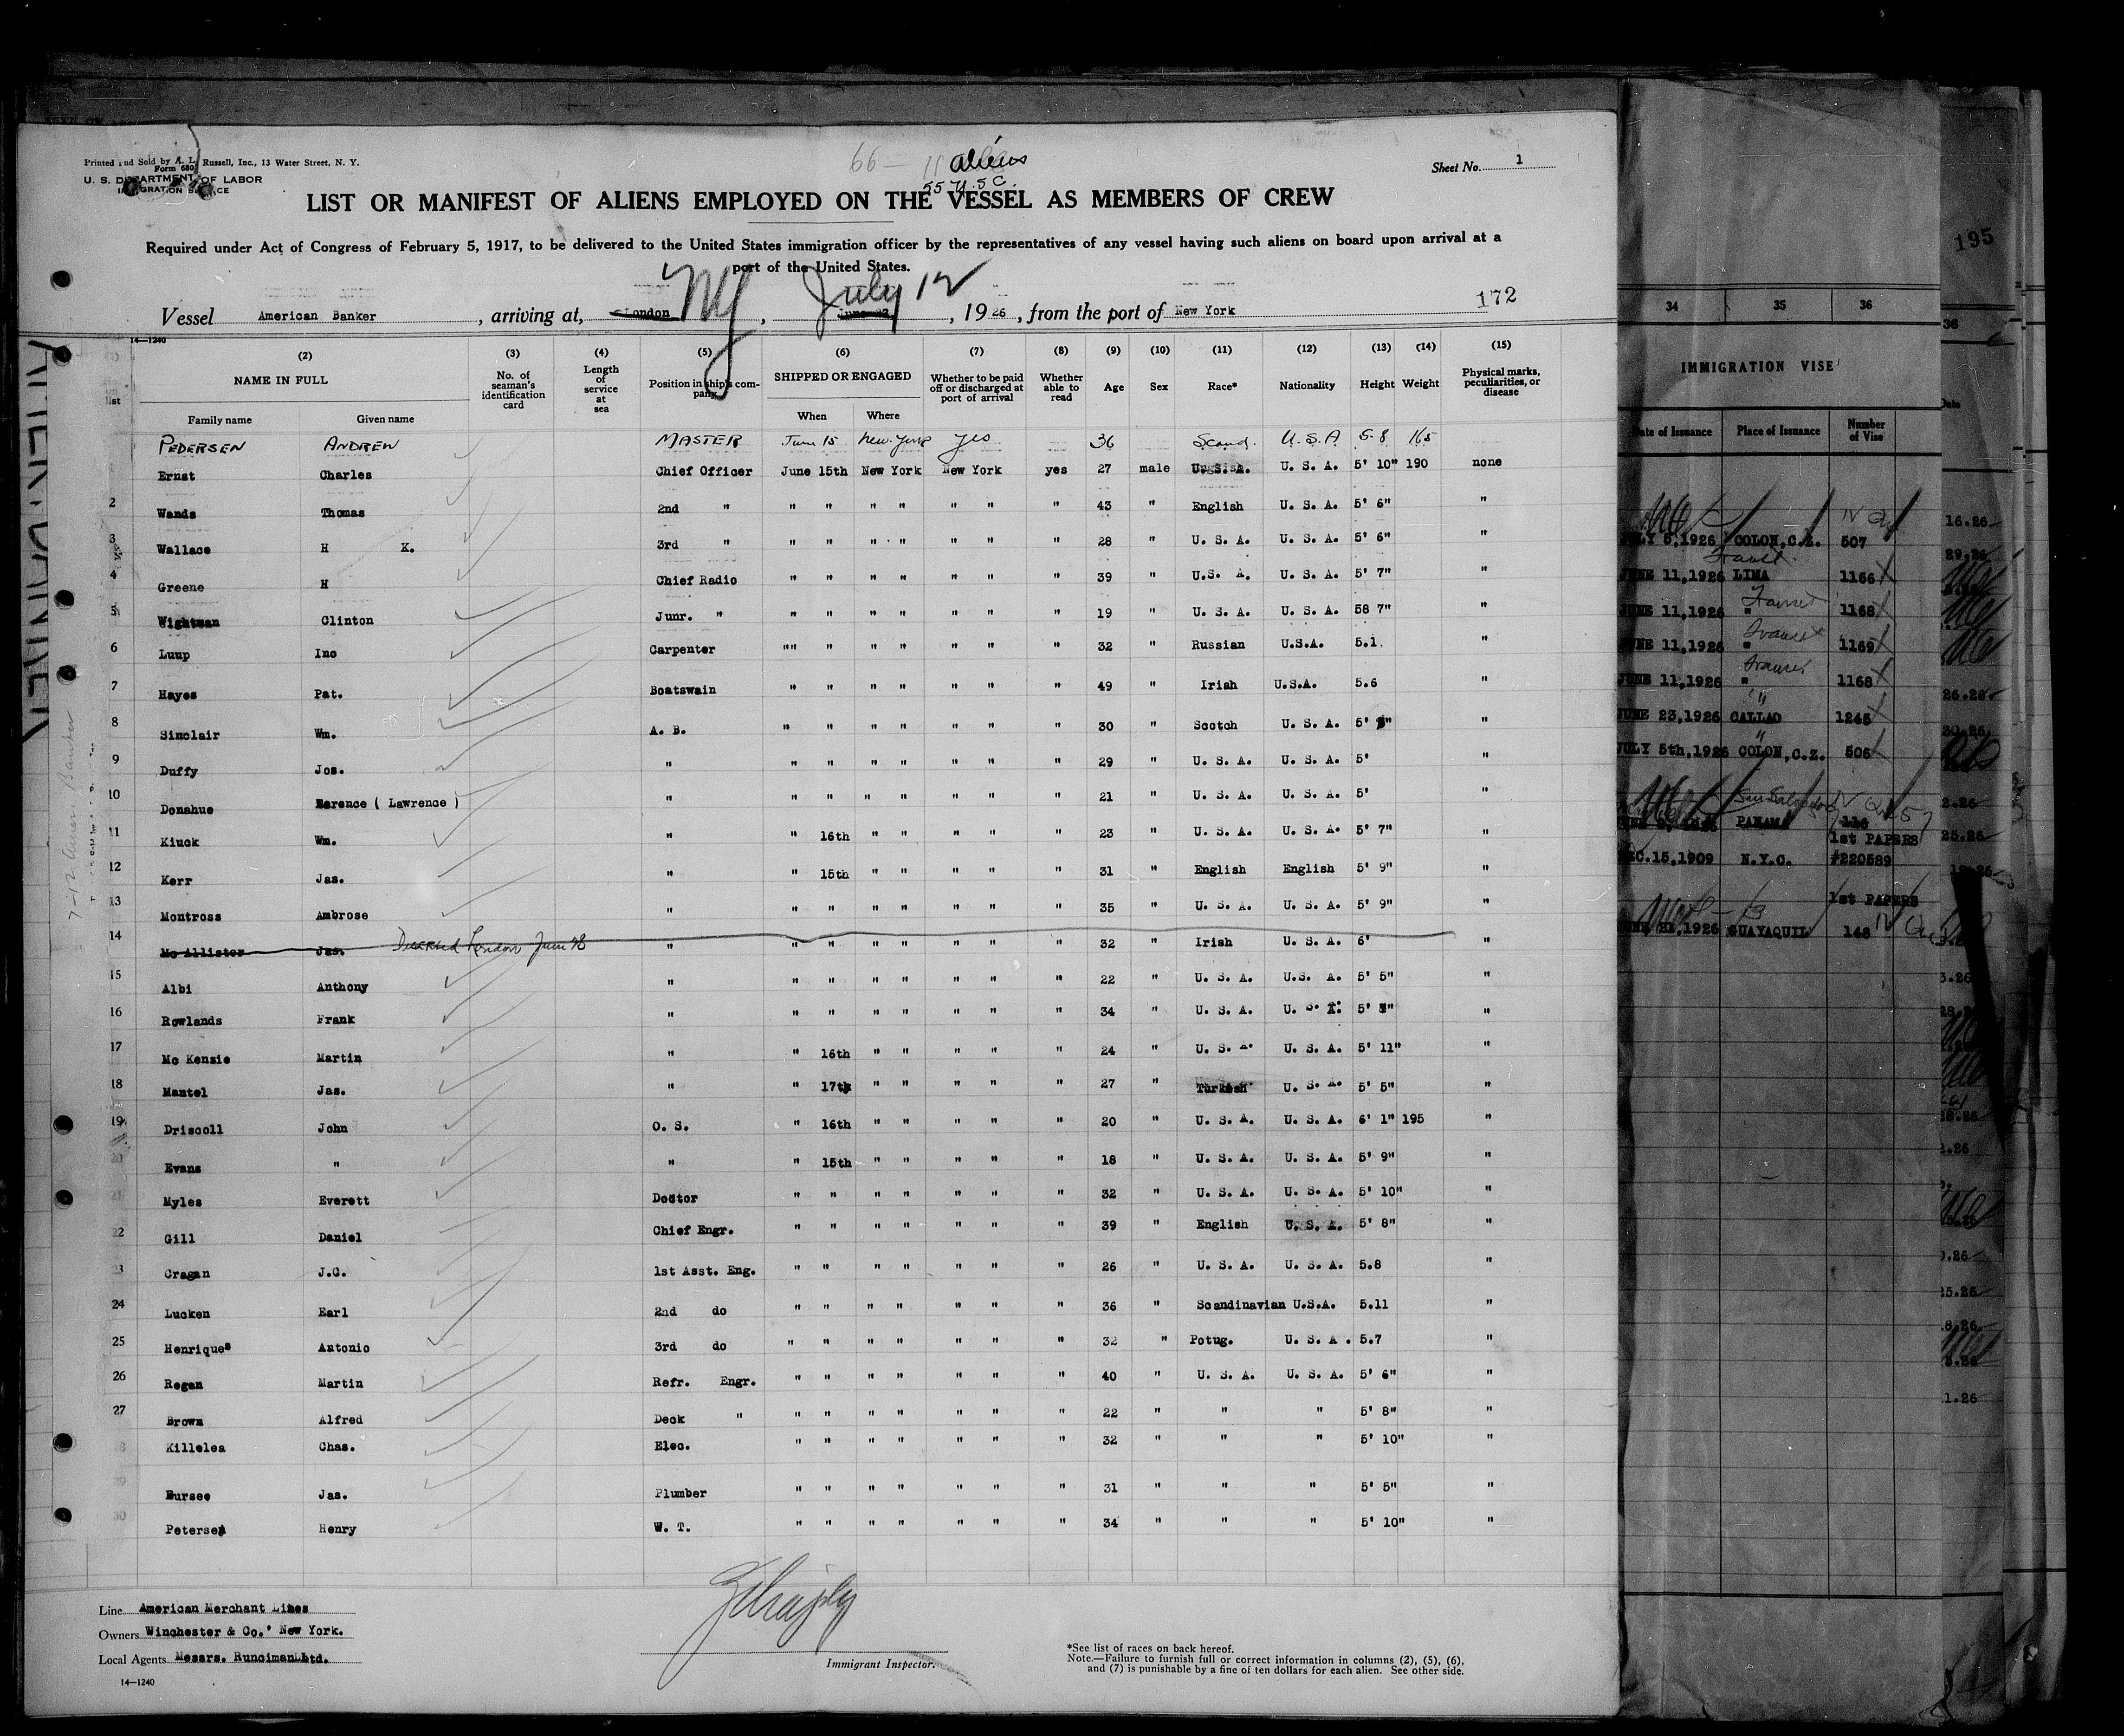 Printed and Sold by A. L. Russell, Inc., 13 Water Street, N. Y.
Form 680
U. S. DEPARTMENT OF LABOR
IMMIGRATION SERVICE
66 — 11 aliens
55 U.S.C.
Sheet No. 1
LIST OR MANIFEST OF ALIENS EMPLOYED ON THE VESSEL AS MEMBERS OF CREW
Required under Act of Congress of February 5, 1917, to be delivered to the United States immigration officer by the representatives of any vessel having such aliens on board upon arrival at a
port of the United States.
Vessel American Banker, arriving at, London NY, June July 12, 1926, from the port of New York 172
14—1240
(2) (3) (4) (5) (6) (7) (8) (9) (10) (11) (12) (13) (14) (15)
list NAME IN FULL No. of seaman's identification card Length of service at sea Position in ship's company SHIPPED OR ENGAGED Whether to be paid off or discharged at port of arrival Whether able to read Age Sex Race* Nationality Height Weight Physical marks, peculiarities, or disease
Family name Given name When Where
PEDERSEN ANDREW MASTER June 15 New York yes 36 Scand. U.S.A 5.8 165
Ernst Charles Chief Officer June 15th New York New York yes 27 male U.S.A. U. S. A. 5' 10" 190 none
2 Wands Thomas 2nd " " " " " " " " 43 " English U. S. A. 5' 6" "
3 Wallace H K. 3rd " " " " " " " " 28 " U. S. A. U. S. A. 5' 6" "
4 Greene H Chief Radio " " " " " " " 39 " U.S. A. U. S. A. 5' 7" "
5 Wightman Clinton Junr. " " " " " " " " 19 " U. S. A. U. S. A. 58 7" "
6 Luup Ino Carpenter "" " " " " " " 32 " Russian U.S.A. 5.1. "
7 Hayes Pat. Boatswain " " " " " " " 49 " Irish U.S.A. 5.6 "
8 Sinclair Wm. A. B. " " " " " " " 30 " Scotch U. S. A. 5' "
9 Duffy Jos. " " " " " " " " 29 " U. S. A. U. S. A. 5' "
10 Donahue Larence ( Lawrence ) " " " " " " " " 21 " U. S. A. U. S. A. 5' "
11 Kiuck Wm. " " 16th " " " " " 23 " U. S. A. U. S. A. 5' 7" "
12 Kerr Jas. " " 15th " " " " " 31 " English English 5' 9" "
13 Montross Ambrose " " " " " " " " 35 " U. S. A. U. S. A. 5' 9" "
14 Mc Allister Jas. Deserted London June 28 " " " " " " " " 32 " Irish U. S. A. 6' "
15 Albi Anthony " " " " " " " " 22 " U. S. A. U.S. A. 5' 5" "
16 Rowlands Frank " " " " " " " " 34 " U. S. A. U. S. A. 5' " "
17 Mc Kenzie Martin " " 16th " " " " " 24 " U. S. A. U. S. A. 5' 11" "
18 Mantel Jas. " " 17th " " " " " 27 " Turkish U. S. A. 5' 5" "
19 Driscoll John O. S. " 16th " " " " " 20 " U. S. A. U. S. A. 6' 1" 195 "
20 Evans " " " 15th " " " " " 18 " U. S. A. U. S. A. 5' 9" "
21 Myles Everett Doctor " " " " " " " 32 " U. S. A. U. S. A. 5' 10" "
22 Gill Daniel Chief Engr. " " " " " " " 39 " English U. S. A. 5' 8" "
23 Cragan J.G. 1st Asst. Eng. " " " " " " " 26 " U. S. A. U. S. A. 5.8 "
24 Lucken Earl 2nd do " " " " " " " 36 " Scandinavian U.S.A. 5.11 "
25 Henriques Antonio 3rd do " " " " " " " 32 " Potug. U. S. A. 5.7 "
26 Regan Martin Refr. Engr. " " " " " " " 40 " U. S. A. U. S. A. 5' 6" "
27 Brown Alfred Deck " " " " " " " " 22 " " " 5' 8" "
28 Killelea Chas. Elec. " " " " " " " 32 " " " 5' 10" "
29 Bursee Jas. Plumber " " " " " " " 31 " " " 5' 5" "
30 Petersen Henry W. T. " " " " " " " 34 " " " 5' 10" "
Line American Merchant Lines
Owners Winchester & Co.' New York.
Local Agents Messrs. Runciman Ltd.
14—1240
Immigrant Inspector.
*See list of races on back hereof.
Note.—Failure to furnish full or correct information in columns (2), (5), (6),
and (7) is punishable by a fine of ten dollars for each alien. See other side.
7-12 Amer Banker
34 35 36
IMMIGRATION VISE
Date of Issuance Place of Issuance Number of Vise
JULY 6,1926 COLON,C.Z. 507
Transit
JUNE 11,1926 LIMA 1166
Transit
JUNE 11,1926 " 1168
Transit
JUNE 11,1926 " 1169
Transit
JUNE 11,1926 " 1168
"
JUNE 23,1926 CALLAO 1245
"
JULY 5th,1926 COLON,C.Z. 506
San Salvador
PANAMA 116
1st PAPERS
DEC.15,1909 N.Y.C. #220589
1st PAPERS
JUNE 21,1926 GUAYAQUIL 148
195
36
16.26
29.26
26.26
30.26
2.26
25.26